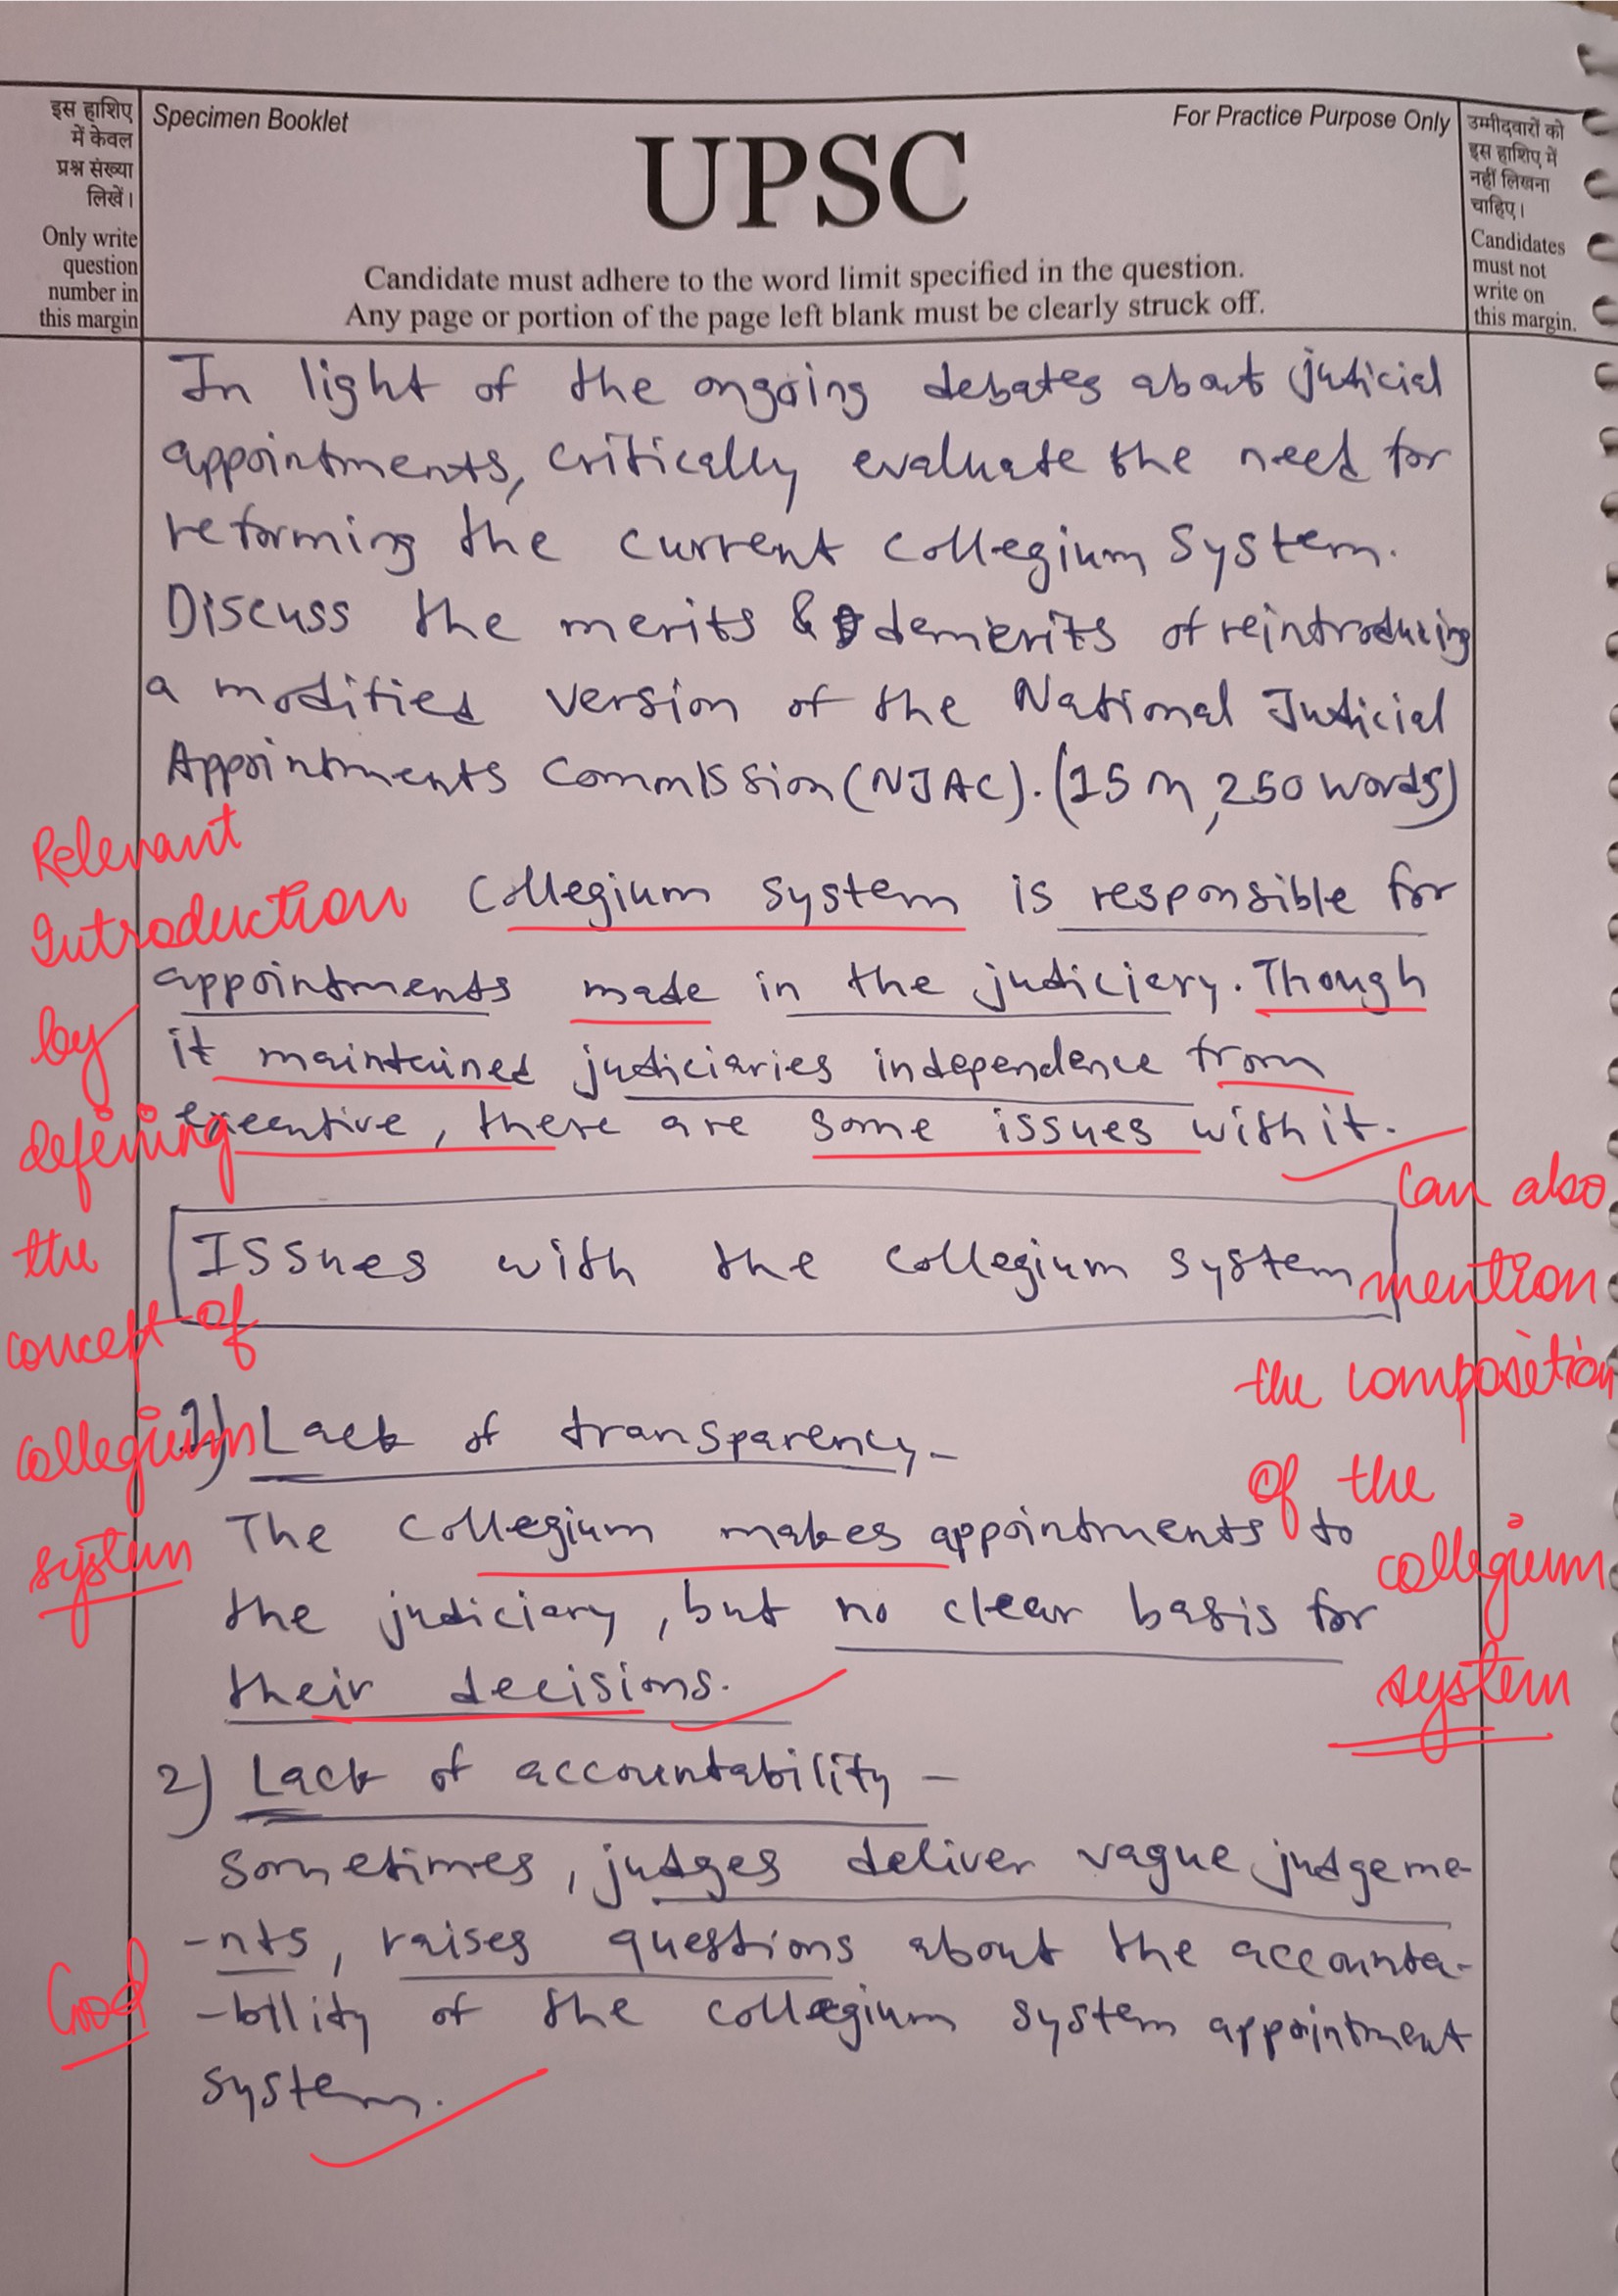 इस हाशिए
में केवल
प्रश्न संख्या
लिखें।
Only write
question
number in
this margin
Specimen Booklet
For Practice Purpose Only
UPSC
Candidate must adhere to the word limit specified in the question.
Any page or portion of the page left blank must be clearly struck off.
उम्मीदवारों को
इस हाशिए में
नहीं लिखना
चाहिए।
Candidates
must not
write on
this margin.
In light of the ongoing debates about judicial
appointments, critically evaluate the need for
reforming the current collegium system.
Discuss the merits & demerits of reintroducing
a modified version of the National Judicial
Appointments Commission (NJAC). (15 m, 250 words)
Relevant
Introduction
by
defining
the
concept of
collegium
system
Collegium system is responsible for
appointments made in the judiciary. Though
it maintained judiciaries independence from
executive, there are some issues with it.
Can also
mention
the composition
of the
collegium
system
Issues with the collegium system
1) Lack of transparency -
The collegium makes appointments to
the judiciary, but no clear basis for
their decisions.
2) Lack of accountability -
Sometimes, judges deliver vague judgeme-
-nts, raises questions about the accounta-
-bility of the collegium system appointment
system.
Good